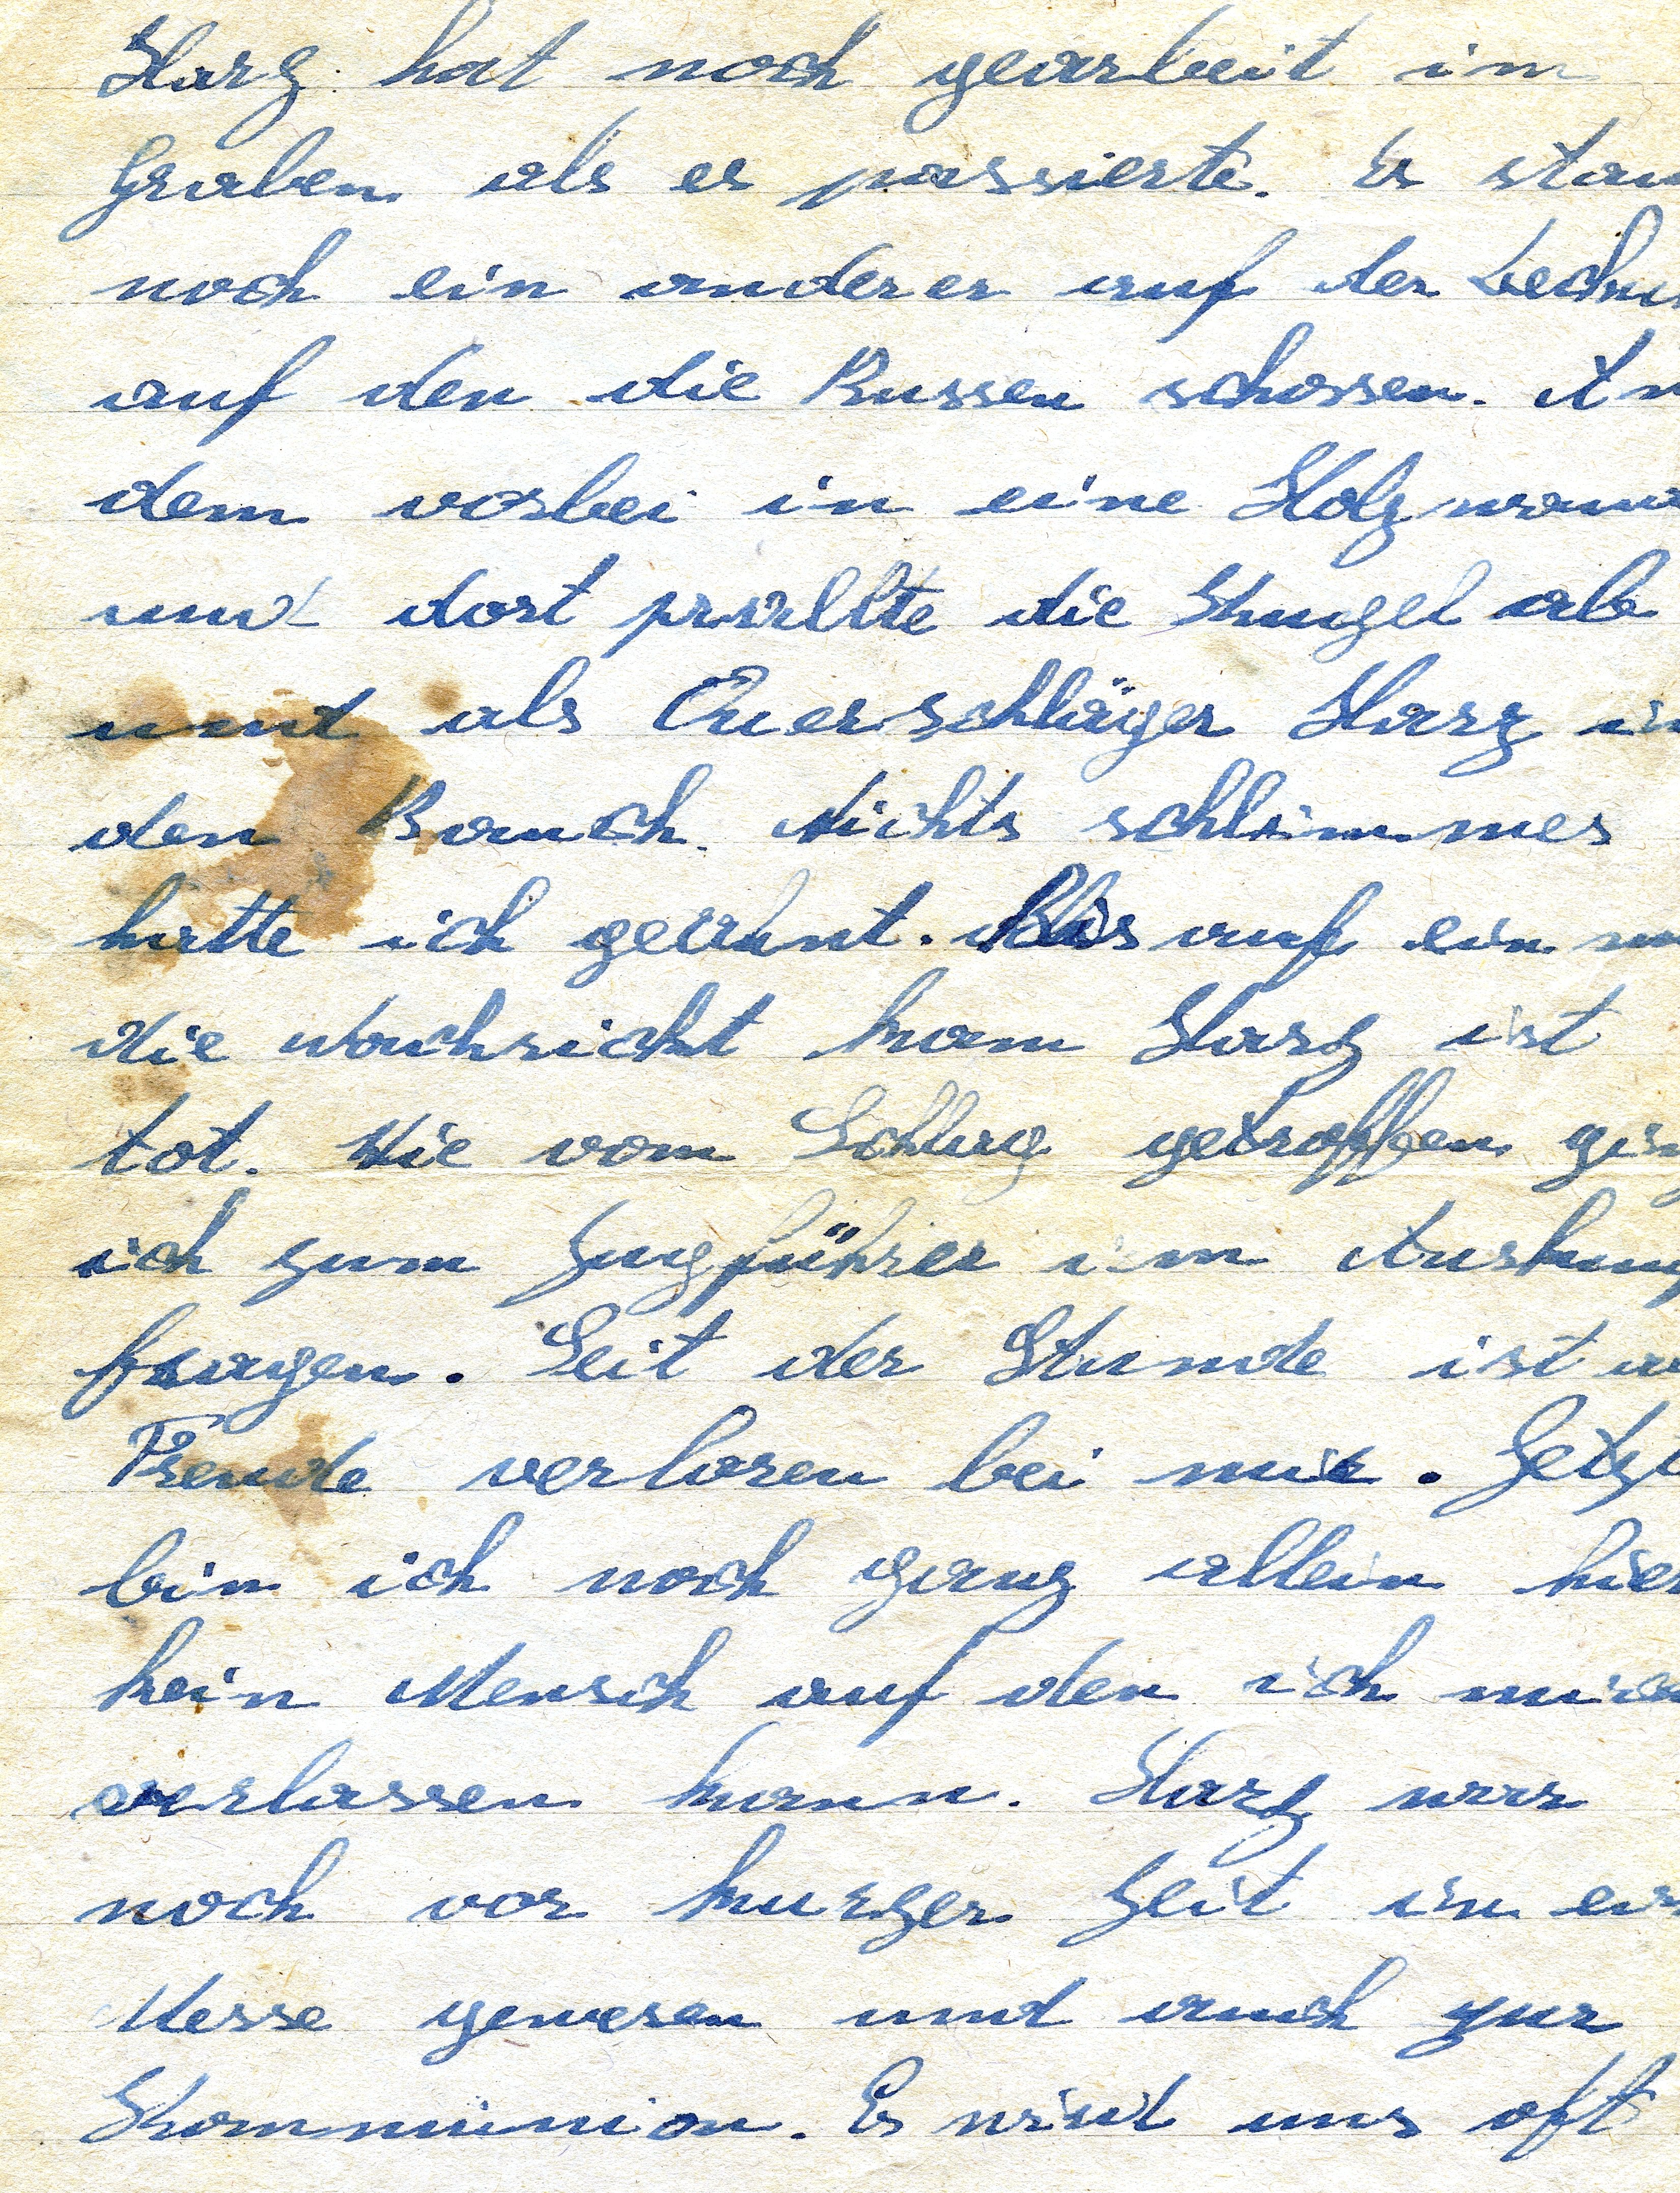 Harz. hat noch gearbeit im
Graben als es passierte. Es stan
noch ein anderer auf der Deckun
auf den die Russen schossen. An
dem vorbei in eine Holzwand
und dort prallte die Kugel ab
und als Querschläger Harz in
den Bauch. Nichts schlimmes
hatte ich geahnt. Bis auf ein m
die Nachricht kam Harz ist
tot. Wie vom Schlag getroffen gin
ich zum Zugführer um Auskunf
fragen. Seit der Stunde ist a
Freude verloren bei mir. Jetzt
bin ich noch ganz allein hier
kein Mensch auf den ich mich
verlassen kann. Harz war
noch vor kurzer Zeit in ein
Messe gewesen und auch zur
Kommunion. Es wird uns oft